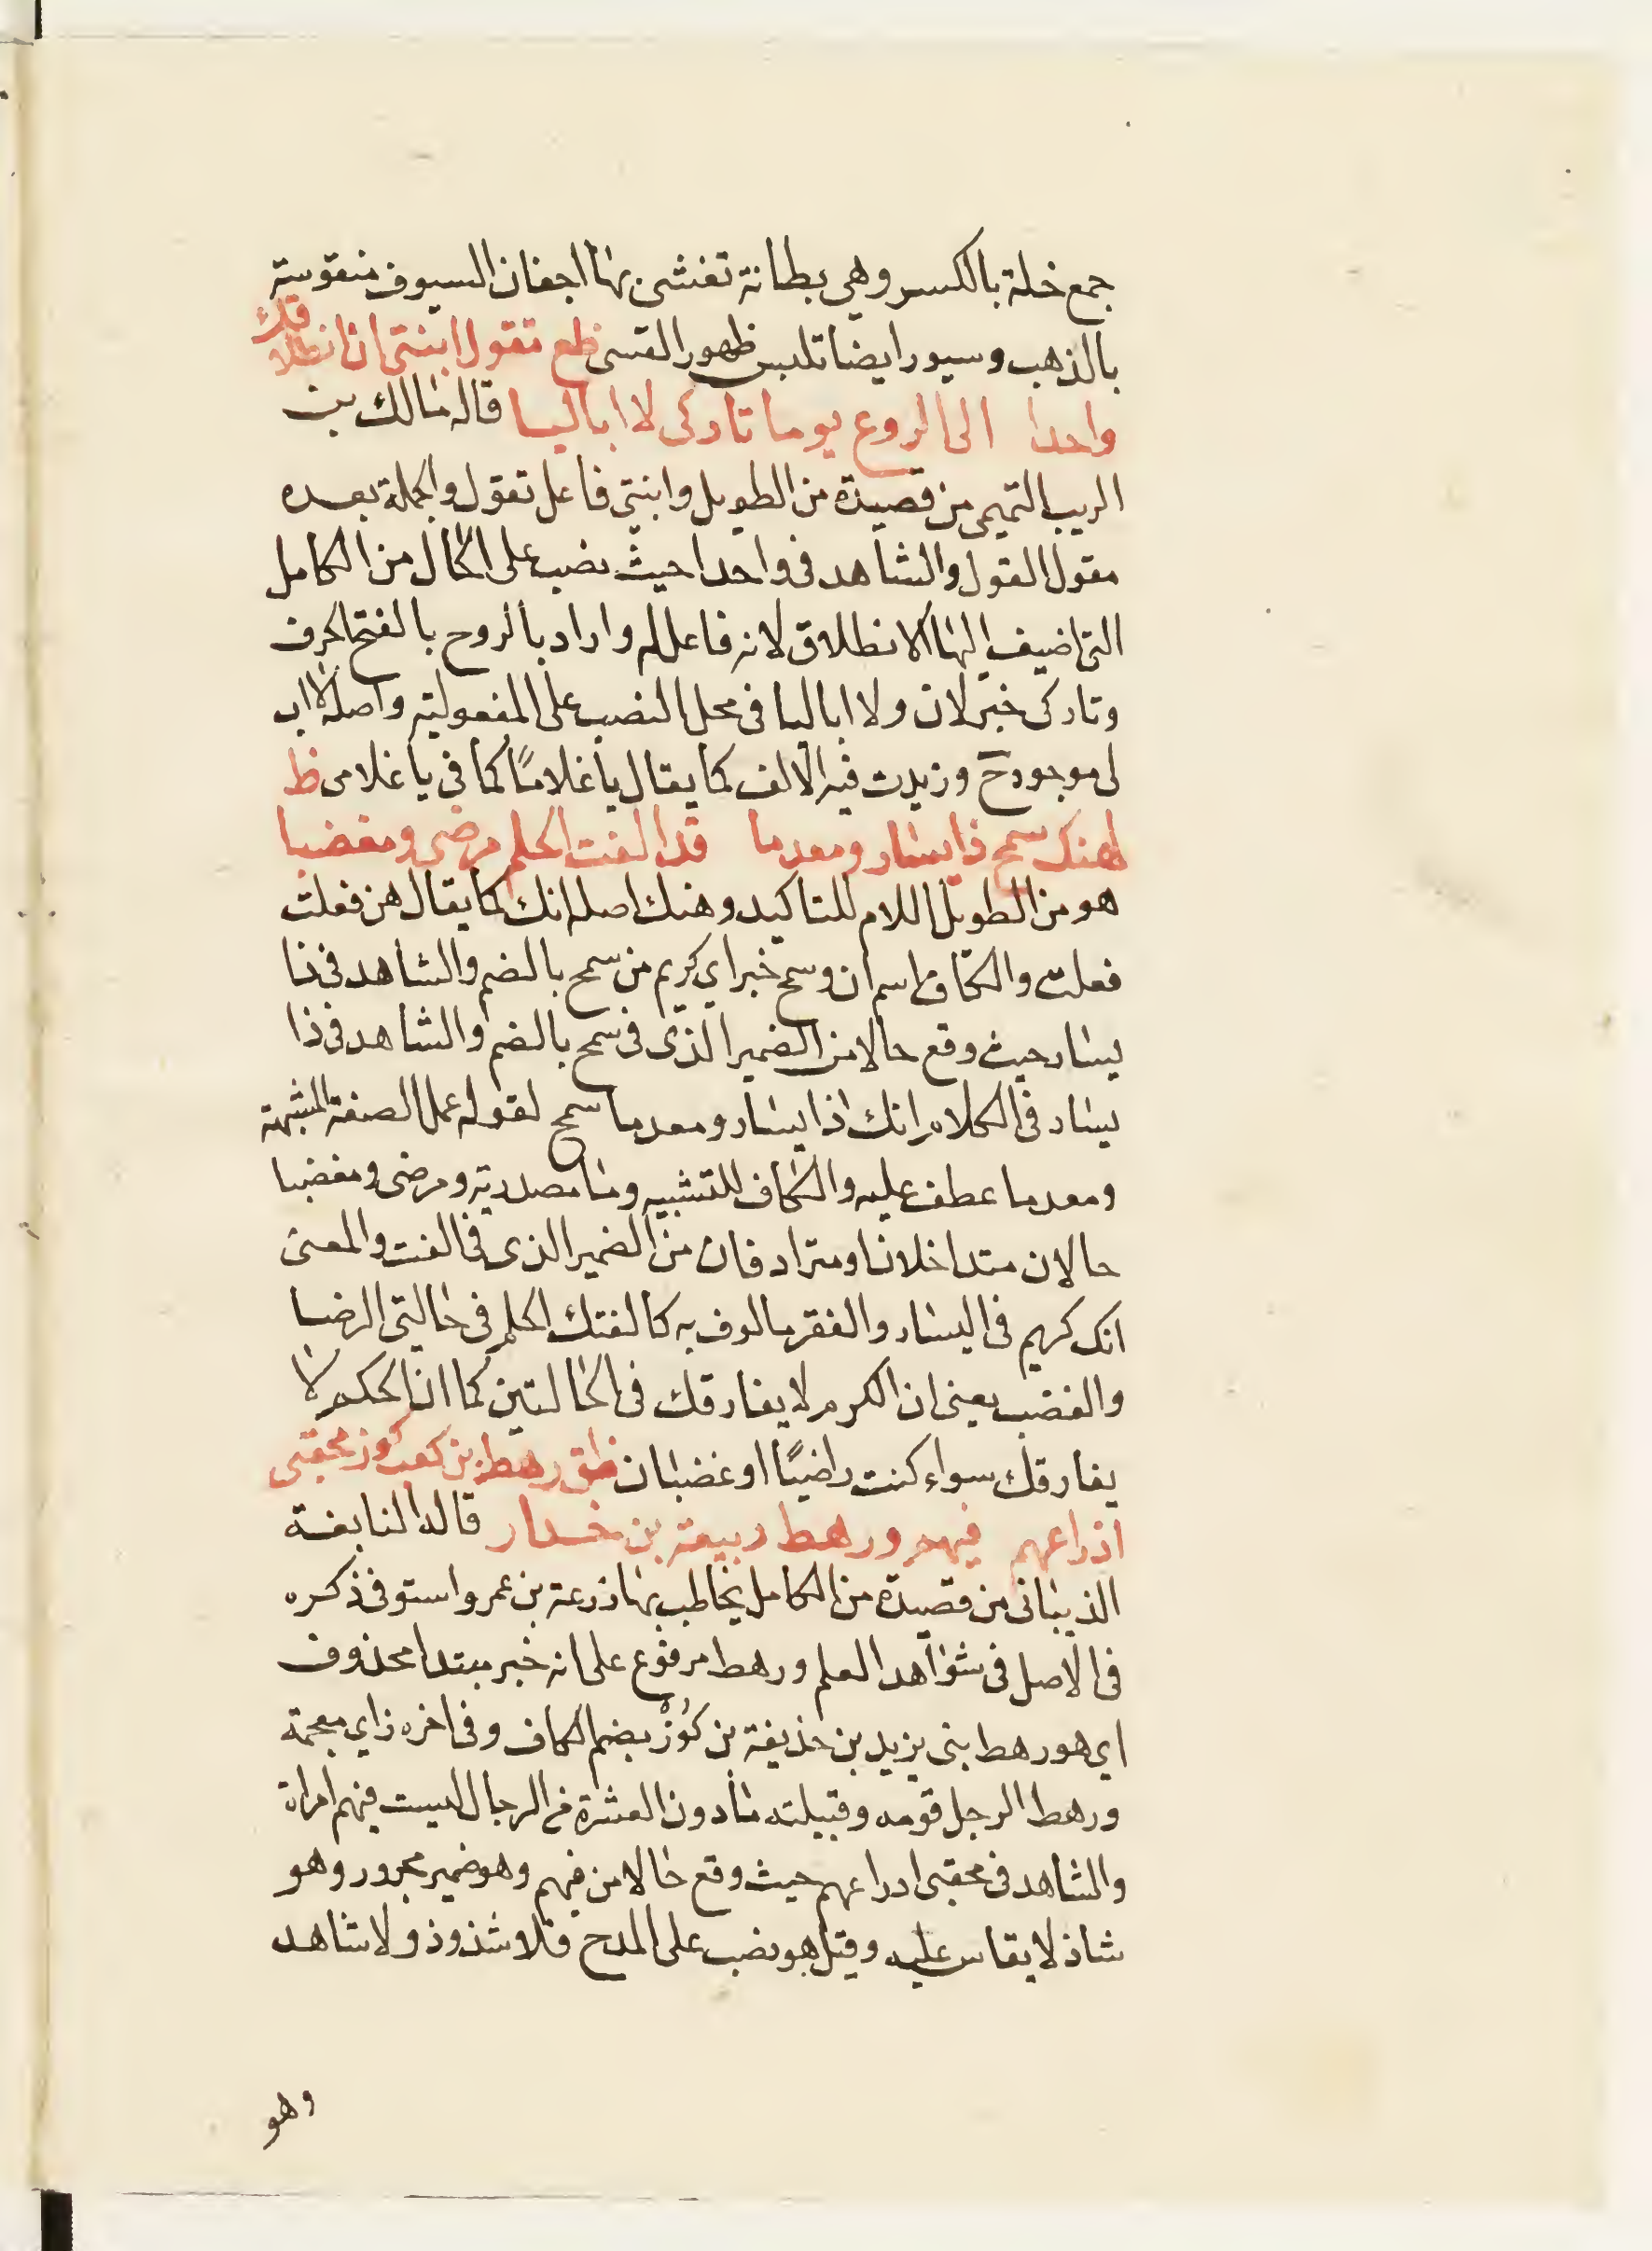 جمع خلة بالكسر وهي بطانة تغشى بها اجفان السيوف منقوشة
بالذهب وسيور ايضا تلبس ظهور القسى ظع تقول ابنتى ان انطلاقك
واحدا الى الروع يوما تاركى لا اباليا قاله مالك بن
الريب التميمى من قصيدة من الطويل وابنتي فاعل تقول والجملة بعده
مقول القول والشاهد فى واحدا حيث نصب على الحال من الكامل
التى اضيف اليها الانطلاق لانه فاعلله واراد بالروح بالفتح الحرف
وتاركى خبر لان ولا اباليا فى محل النصب على المفعولية واصله لا اب
لى موجود ح وزيدت فيه الالف كما يقال يا غلاما كما فى يا غلامى ظ
لهنك سمح ذا يسار ومعدما قد الفت الحلم مرضى ومغضبا
هو من الطويل اللام للتاكيد وهنك اصله انك كما يقال هن فعلت
فعلت والكاف اسم ان وسمح خبر اي كريم من سمح بالضم والشاهد فى ذا
يسار حيث وقع حالا من الضمير الذى فى سمح بالضم والشاهد فى ذا
يسار فى الكلام انك ذا يسار ومعدما سمح لقوله عمل الصفة المشبهة
ومعدما عطف عليه والكاف للتشبيه وما مصدرية ومرضى ومغضبا
حالان متداخلان او مترادفان من الضمير الذى فى الفت والمعنى
انك كريم فى اليسار والفقر مالوف به كالفتك الحلم فى حالتى الرضا
والغضب يعنى ان الكرم لا يفارقك فى الحالتين كما ان الحكم لا
يفارقك سواء كنت راضيًا او غضبان ظق رهط بن كعب كوز محقبى
اذراعهم فيهم ورهط ربيعة بن حذار قاله النابغة
الذبيانى من قصيدة من الكامل يخاطب بها زرعة بن عمرو استوفى ذكره
فى الاصل فى شواهد العلم ورهط مرفوع على انه خبر مبتدا محذوف
اي هو رهط بنى يزيد بن حذيفة بن كُوزْ بضم الكاف وفى اخره زاي معجمة
ورهط الرجل قومه وقبيلته ما دون العشرة من الرجال ليست فيهم امراة
والشاهد فى محقبى ادراعهم حيث وقع حالا من فيهم وهو ضمير مجرور وهو
شاذ لا يقاس عليه وقيل هو نصب على المدح فلا شذوذ ولا شاهد
وهو